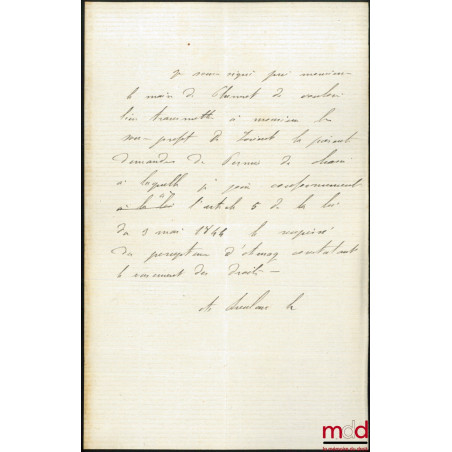 je sous signé prie monsieur
le maire de Plumet de vouloir
bien transmettre à monsieur le
sous-préfet de Lorient la présente
demande de Permis de chasse
à laquelle je joins conformément
à la loi à l'article 5 de la loi
du 3 mai 1844 le récépissé
du percepteur d' constatant
le versement des droits —
mdd
la mémoire du droit